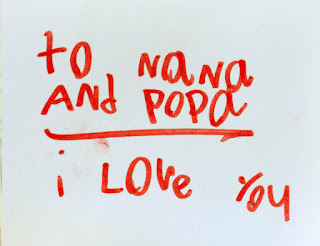 to NaNa
ANd POPa
i LOVe
You